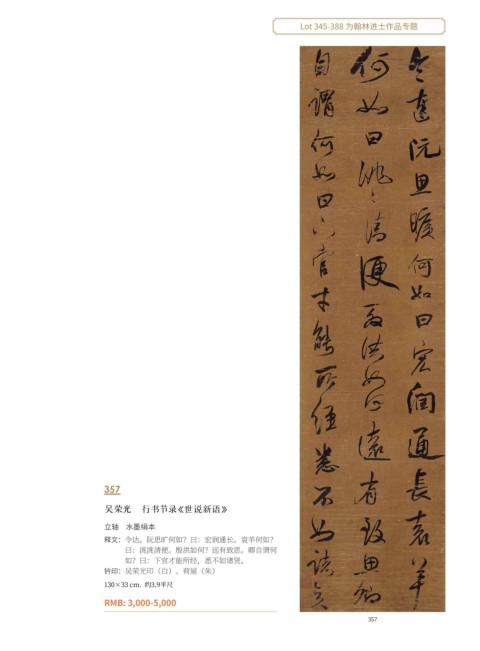 Lot 345-388 为翰林进士作品专题
令達阮思曠何如曰宏潤通長袁羊
何如曰洮洮清便殷洪如何遠有致思卿
自謂何如曰下官才能所經悉不如諸賢
357
吴荣光 行书节录《世说新语》
立轴 水墨绢本
释文：令达。阮思旷何如？曰：宏润通长。袁羊何如？
曰：洮洮清便。殷洪如何？远有致思。卿自谓何
如？曰：下官才能所经，悉不如诸贤。
钤印：吴荣光印（白）、荷屋（朱）
130×33 cm. 约3.9平尺
RMB: 3,000-5,000
357